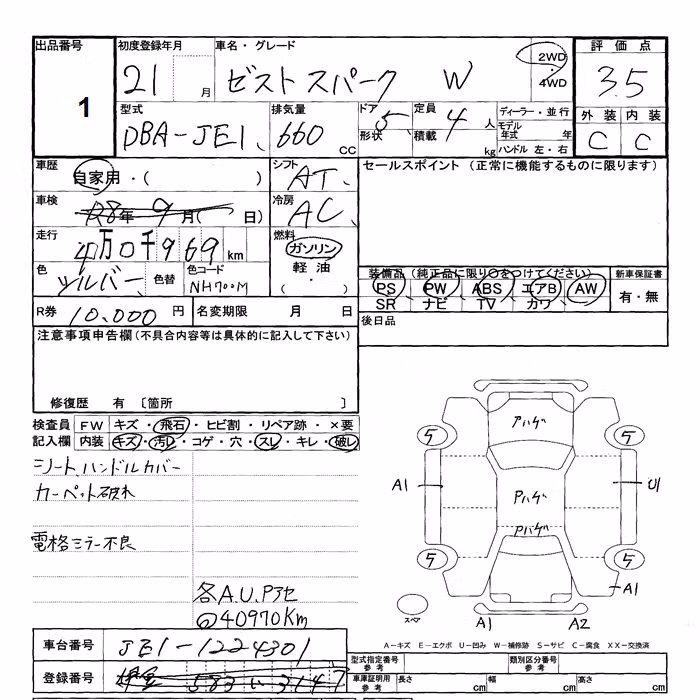 出品番号 初度登録年月 車名・グレード 2WD 評価点
1 21 月 ゼスト スパーク W ・4WD 3.5
型式 排気量 ドア 定員 ディーラー・並行 外装 内装
DBA-JE1 660 CC 形状 5 積載 4 人 kg モデル年式 年 C C
ハンドル 左・右
車歴 自家用・( ) シフト AT セールスポイント (正常に機能するものに限ります)
車検 R8年9月( 日) 冷房 AC
走行 4万0千969km 燃料 ガソリン
軽油
・( )
色 シルバー 色替 色コード NH700M
装備品(純正品に限り○をつけてください) 新車保証書
PS PW ABS エアB AW 有・無
SR ナビ TV カワ
R券 10,000 円 名変期限 月 日 後日品
注意事項申告欄(不具合内容等は具体的に記入して下さい)
修復歴 有 〔箇所 〕
検査員 FW キズ・飛石・ヒビ割・リペア跡・×要
記入欄 内装 キズ・汚レ・コゲ・穴・スレ・キレ・破レ
シート、ハンドルカバー
カーペット破れ
電格ミラー不良
各A.U.Pアセ
◎40970Km
アハゲ
5 5
A1 アハゲ U1
アハゲ
5 5
A1
スペア A1 A2
A-キズ E-エクボ U-凹み W-補修跡 S-サビ C-腐食 XX-交換済
車台番号 JE1-1224301
型式指定番号 参考 類別区分番号 参考
登録番号 583 い 3147
車庫証明用 参考 長さ cm 幅 cm 高さ cm